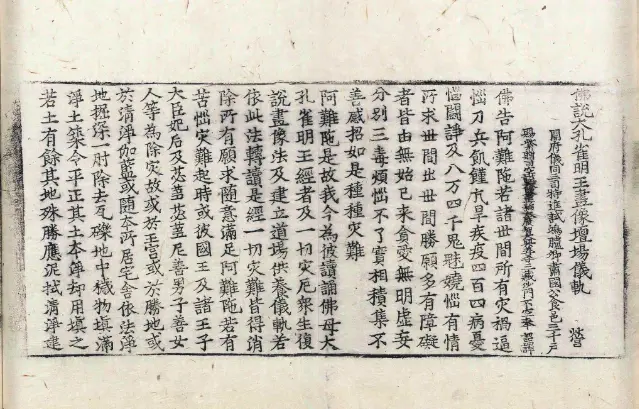 佛說大孔雀明王畫像壇場儀軌
開府儀同三司特進試鴻臚卿肅國公食邑三千戶
三藏沙門 奉 詔譯
佛告阿難陁若諸世間所有灾禍逼
惱刀兵飢饉亢旱疾疫四百四病憂
惱鬪諍及八万四千鬼魅嬈惱有情
所求世間出世間勝願多有障礙
者皆由無始已來貪愛無明虛妄
分別三毒煩惱不了實相積集不
善感招如是種種灾難
阿難陁是故我今為彼讀誦佛母大
孔雀明王經者及一切灾厄衆生復
說畫像法及建立道場供養儀軌若
依此法轉讀是經一切灾難皆得消
除所有願求隨意滿足阿難陁若有
苦惱灾難起時或彼國王及諸王子
大臣妃后及苾蒭苾蒭尼善男子善女
人等為除灾故或於王宮或於勝地或
於清淨伽藍或隨本所居宅舍依法淨
地掘深一肘除去瓦礫地中穢物填滿
淨土築令平正其土本淨却用填之
若土有餘其地殊勝應泥拭清淨建